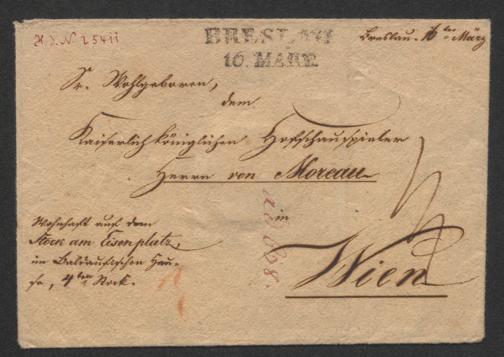 H.I.N 25411
BRESLAU
16. MÄRZ
Breslau. 16ten März
Sr. Wohlgeboren,
dem
Kaiserlich königlichen Hofschauspieler
Herrn von Moreau
in
Wien
Wohnhaft auf dem
Stock am Eisenplatz,
im Baldaufischen Hau-
se, 4ten Stock.